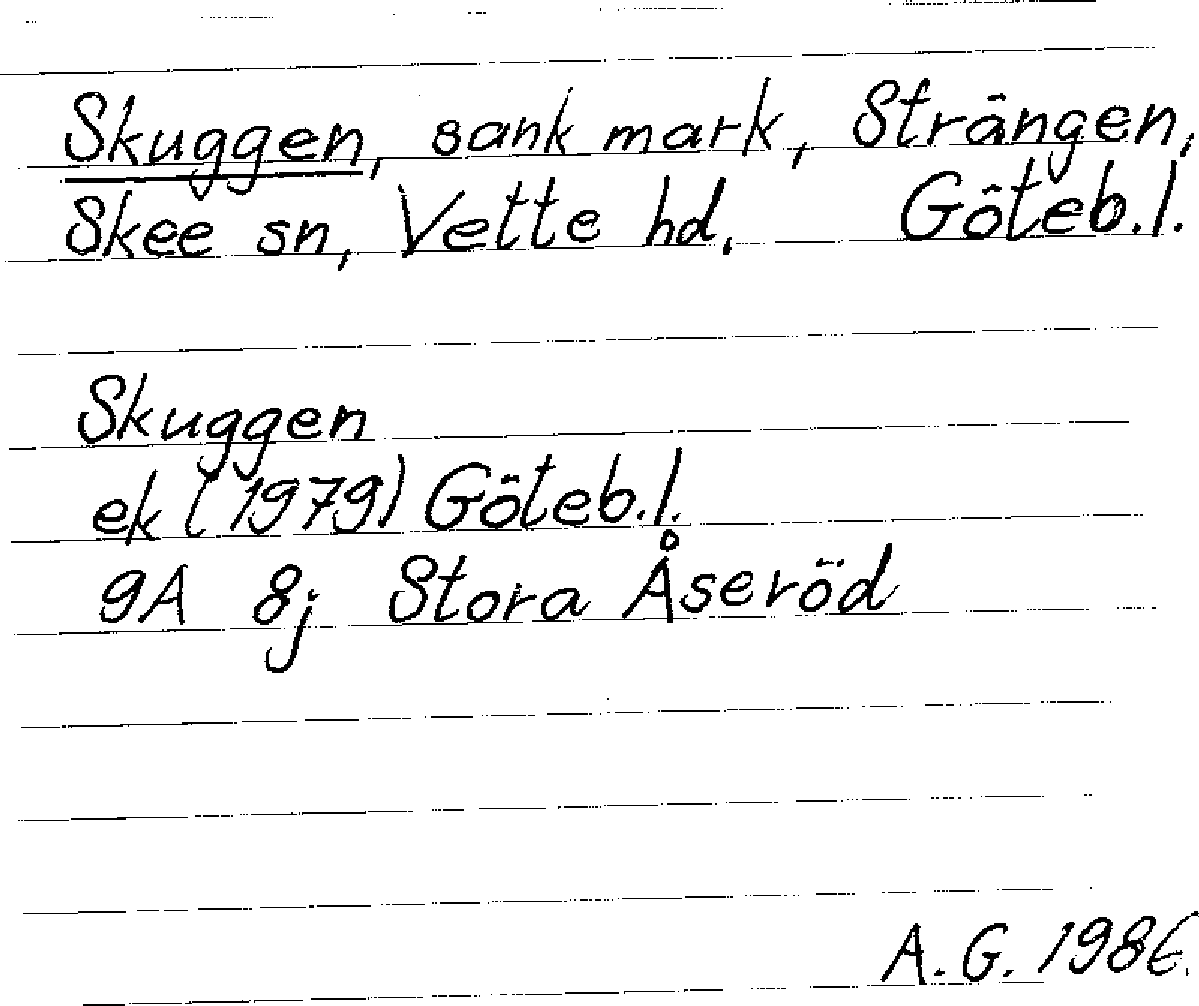 Skuggen, sank mark, Strängen,
Skee sn, Vette hd, Göteb.l.
Skuggen
ek (1979) Göteb.l.
9A 8j Stora Åseröd
A.G. 1986.